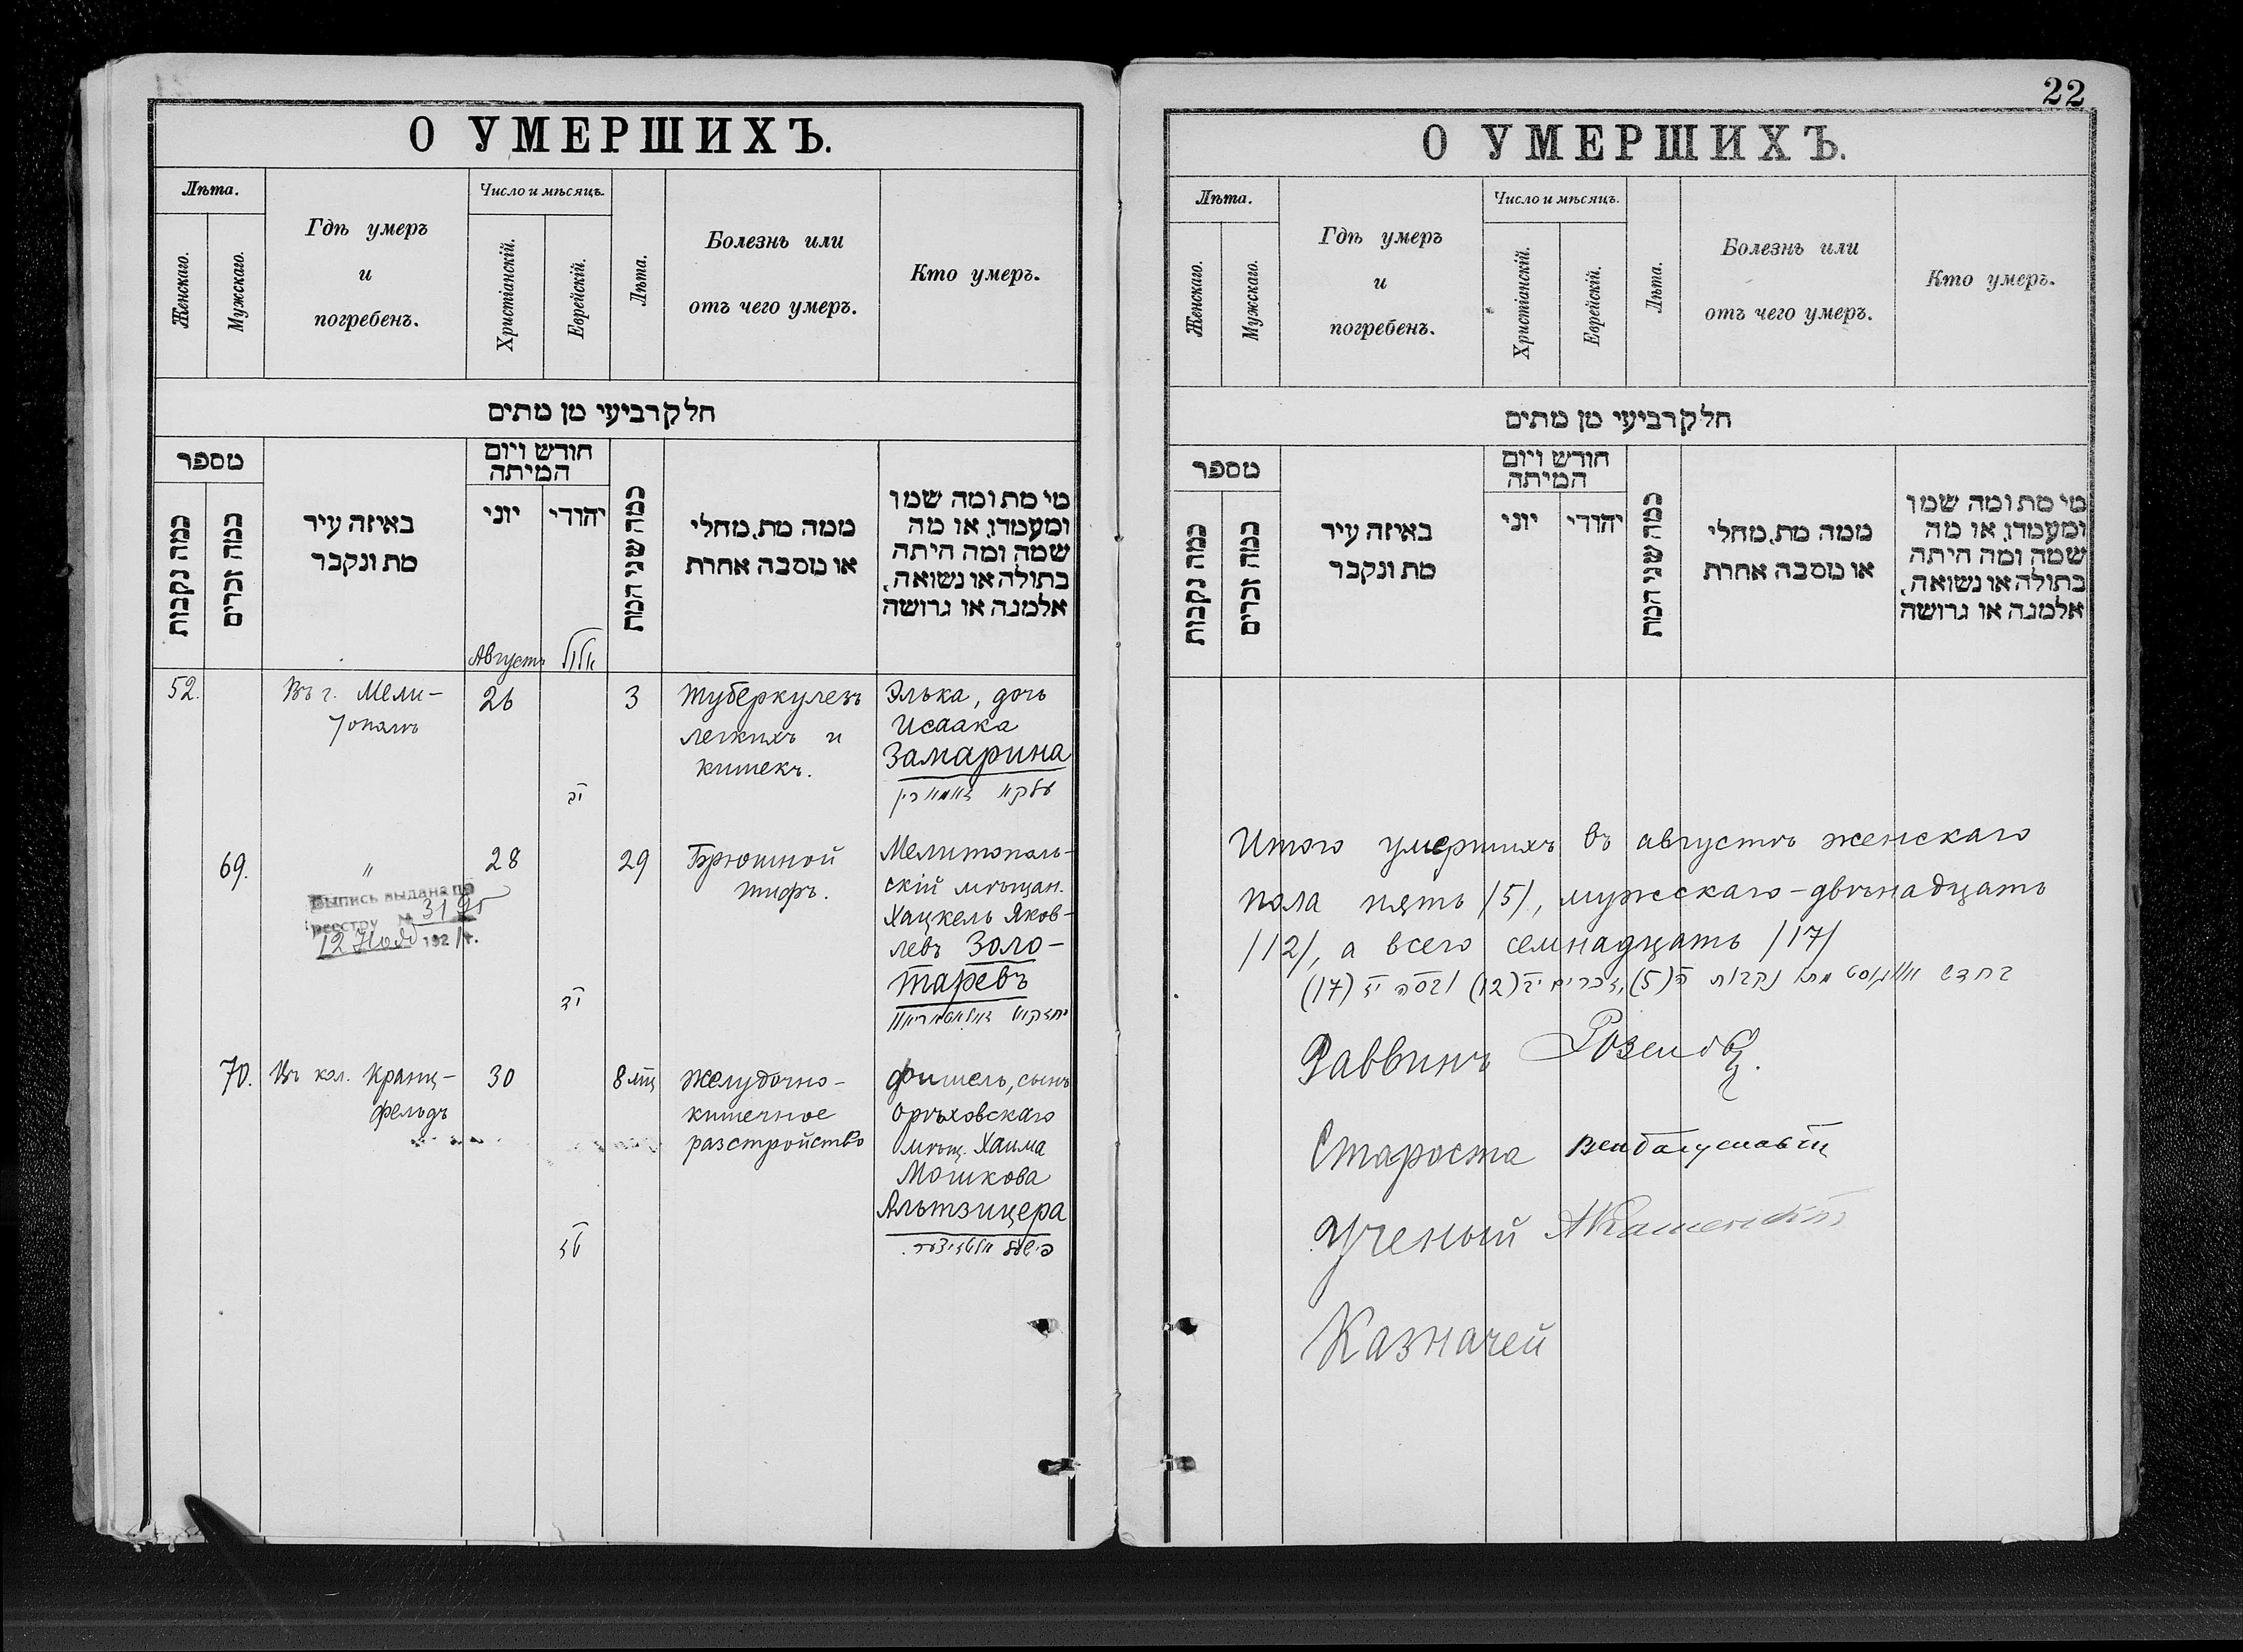 О УМЕРШИХЪ.
Лѣта.
Женскаго.
Мужскаго.
Гдѣ умеръ
и
погребенъ.
Число и мѣсяцъ.
Христіанскій.
Еврейскій.
Лѣта.
Болезнь или
отъ чего умеръ.
Кто умеръ.
חלק רביעי מן מתים
מספר
כמה נקבות
כמה זכרים
באיזה עיר
מת ונקבר
חודש ויום
המיתה
יוני
יהודי
כמה שני המת
ממה מת, מחלי
או מסבה אחרת
מי מת ומה שמו
ומעמדו, או מה
שמה ומה היתה
בתולה או נשואה,
אלמנה או גרושה
Августъ
אלול
52.
Въ г. Мели-
тополѣ
26
יב
3
Туберкулезъ
легкихъ и
кишекъ.
Элька, дочь
Исаака
Замарина
עלקא זאמארין
69.
"
Выпись выдана по
реестру № 3195
12 Нояб 192
28
יד
29
Брюшной
тифъ.
Мелитополь-
скій мѣщан.
Хацкель Яков-
левъ Золо-
таревъ
70.
Въ кол. Кранц-
фельдъ
30
טז
8 мц
Желудочно-
кишечное
разстройство
Фишель, сынъ
Орѣховскаго
мѣщ. Хаима
Мошкова
Альтзицера
פישעל אלטזיצער.
22
О УМЕРШИХЪ.
Лѣта.
Женскаго.
Мужскаго.
Гдѣ умеръ
и
погребенъ.
Число и мѣсяцъ.
Христіанскій.
Еврейскій.
Лѣта.
Болезнь или
отъ чего умеръ.
Кто умеръ.
חלק רביעי מן מתים
מספר
כמה נקבות
כמה זכרים
באיזה עיר
מת ונקבר
חודש ויום
המיתה
יוני
יהודי
כמה שני המת
ממה מת, מחלי
או מסבה אחרת
מי מת ומה שמו
ומעמדו, או מה
שמה ומה היתה
בתולה או נשואה,
אלמנה או גרושה
Итого умершихъ въ августѣ женскаго
пола пять /5/, мужскаго - двѣнадцать
/12/, а всего семнадцать /17/
בחדש אווגוסט מתו נקבות ה (5), זכרים יב (12) ובסה יז (17)
Раввинъ
Староста
Ученый АКаменскій
Казначей